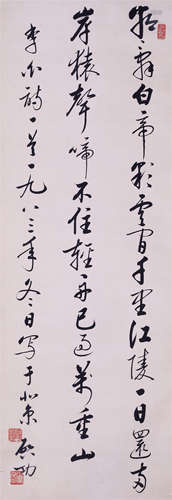 朝辞白帝彩云间千里江陵一日還两
岸猿聲啼不住輕舟已過萬重山
李白詩一首一九八三年冬日写于北京
啟功